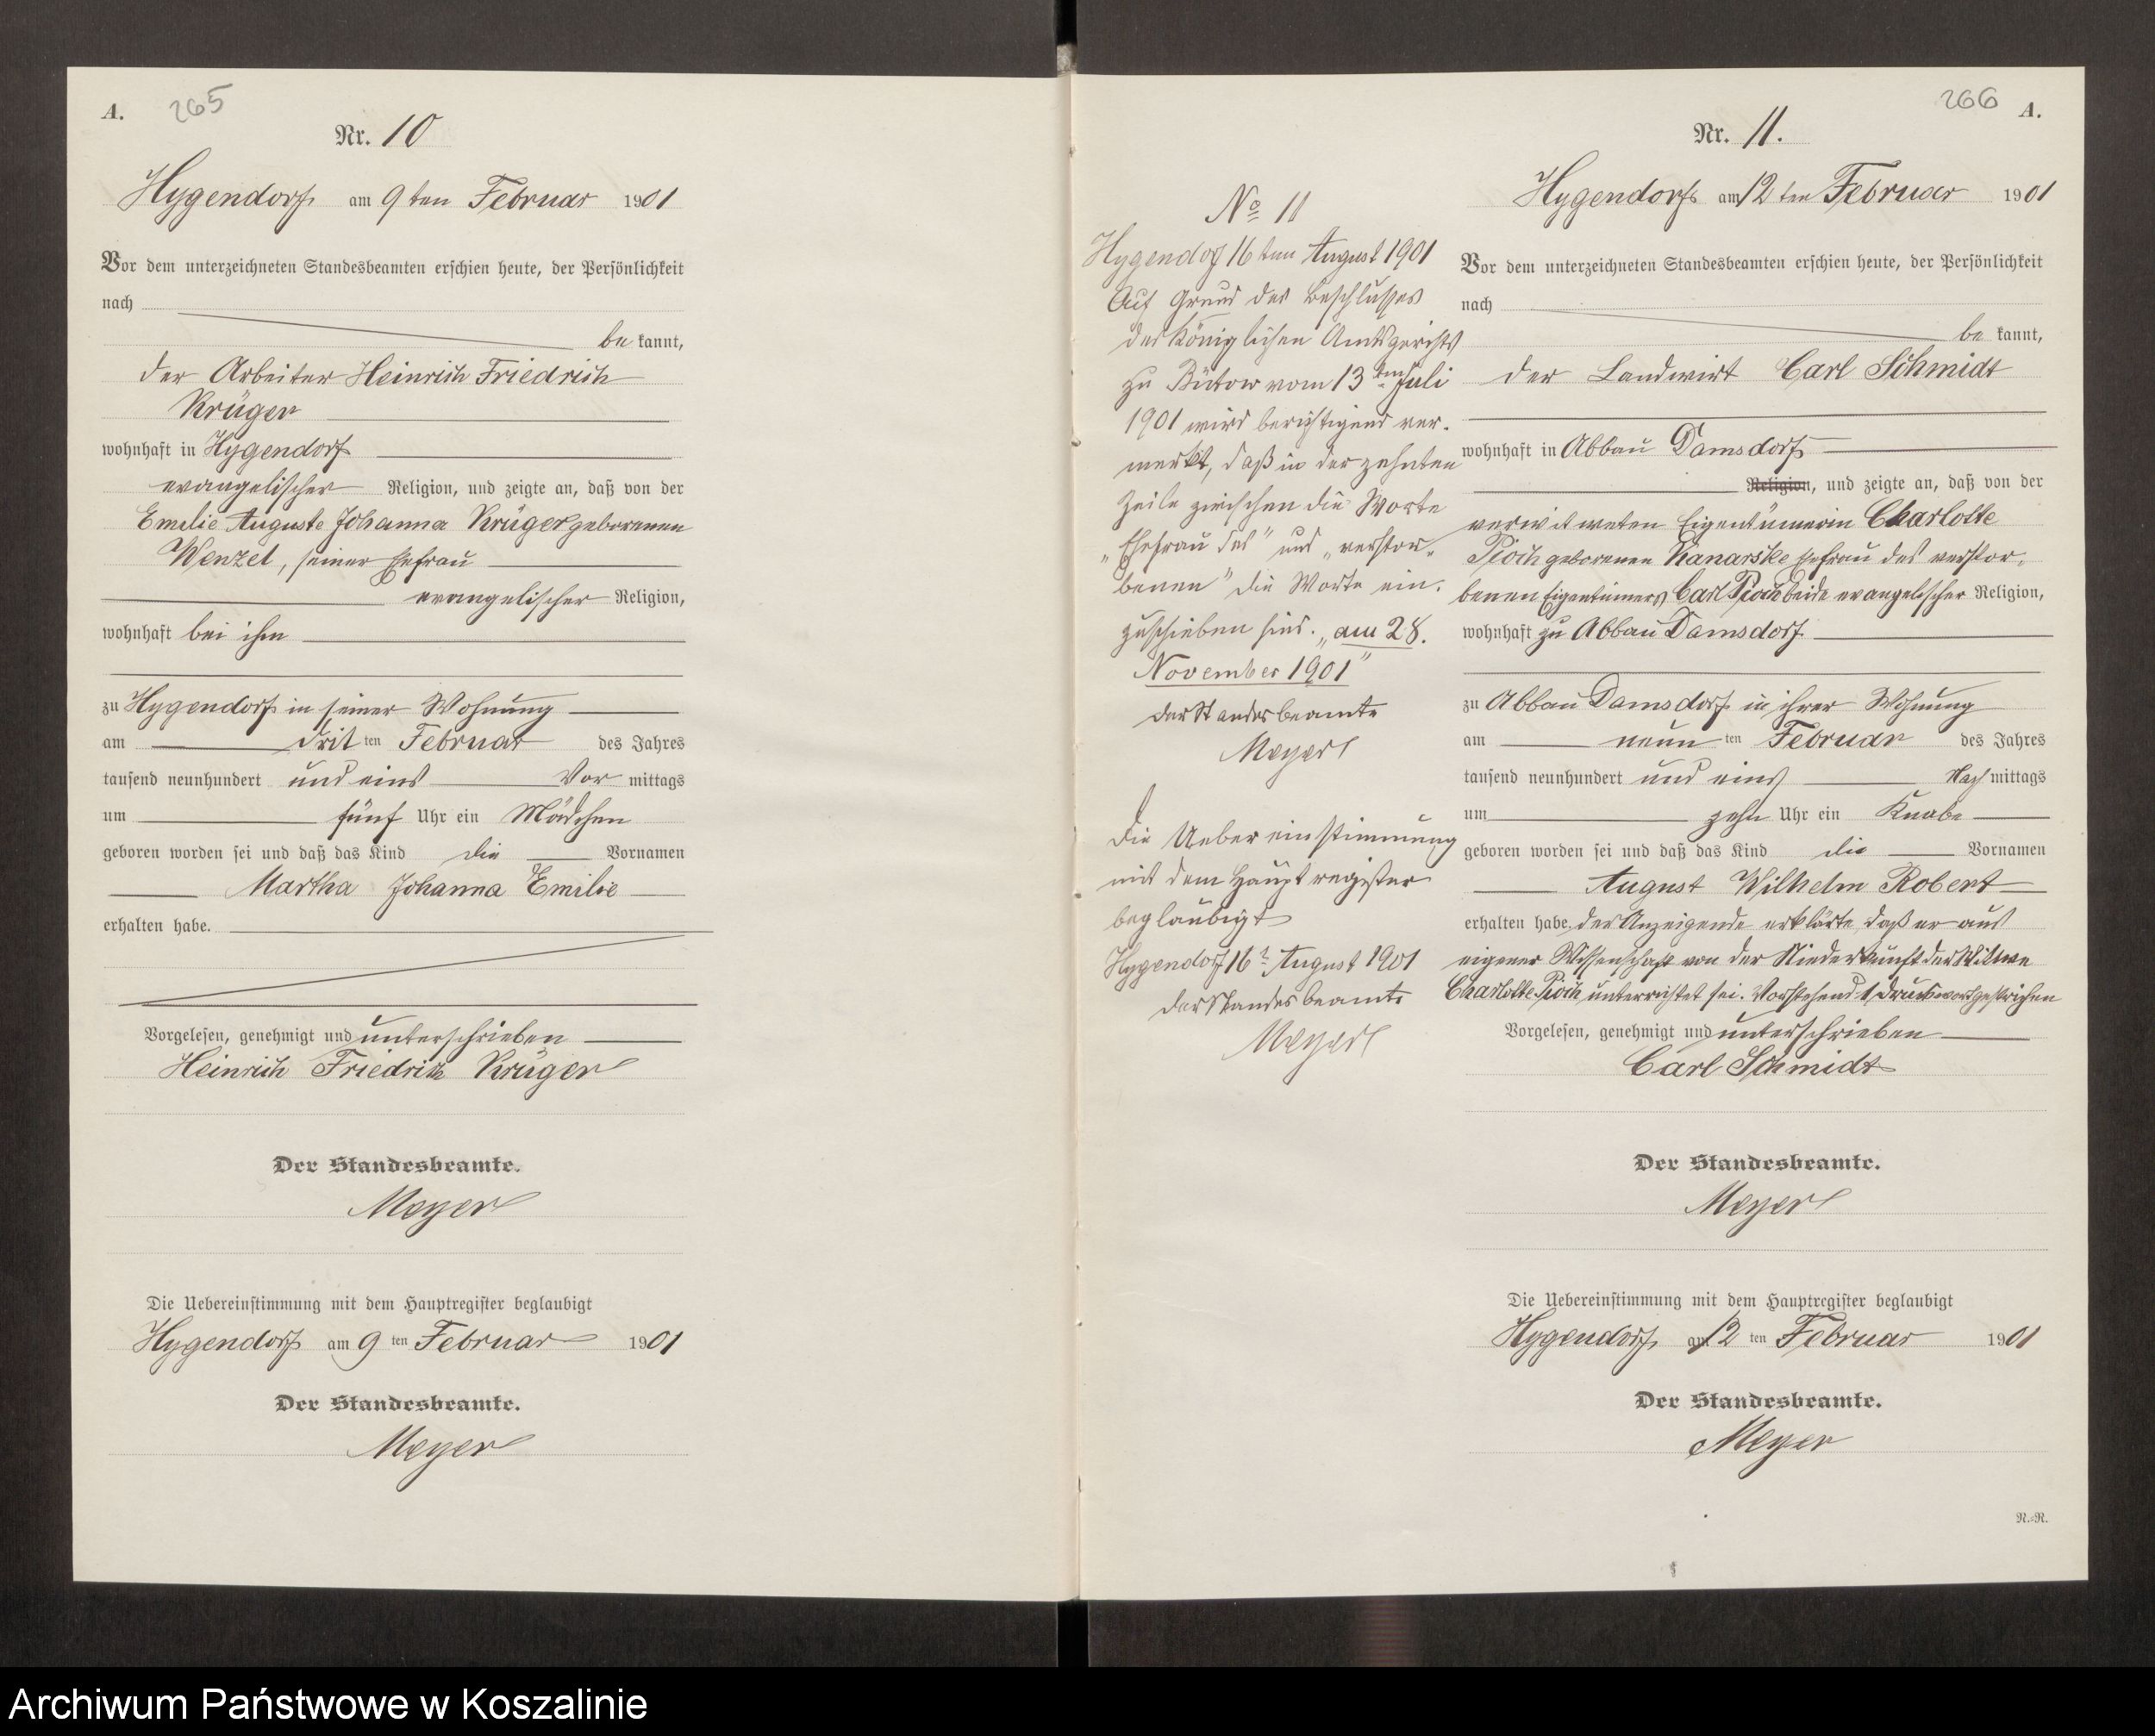 A. 265
Nr. 10
Hygendorf am 9ten Februar 1901
Vor dem unterzeichneten Standesbeamten erschien heute, der Persönlichkeit
nach
be kannt,
der Arbeiter Heinrich Friedrich
Krüger
wohnhaft in Hygendorf
evangelischer Religion, und zeigte an, daß von der
Emilie Auguste Johanna Krüger geborenen
Wenzel, seiner Ehefrau
evangelischer Religion,
wohnhaft bei ihm
zu Hygendorf in seiner Wohnung
am drit ten Februar des Jahres
tausend neunhundert und eins Vor mittags
um fünf Uhr ein Mädchen
geboren worden sei und daß das Kind die Vornamen
Martha Johanna Emilie
erhalten habe.
Vorgelesen, genehmigt und unterschrieben
Heinrich Friedrich Krüger
Der Standesbeamte.
Meyer
Die Uebereinstimmung mit dem Hauptregister beglaubigt
Hygendorf am 9 ten Februar 1901
Der Standesbeamte.
Meyer
No 11
Hygendorf 16ten August 1901
Auf Grund des Beschlusses
des Königlichen Amtsgerichts
zu Bütow vom 13ten Juli
1901 wird berichtigend ver-
merkt, daß in der zehnten
Zeile zwischen die Worte
„Ehefrau des" und „verstor-
benen" die Worte ein-
zuschieben sind. „am 28.
November 1901"
Der Standesbeamte
Meyer
Die Uebereinstimmung
mit dem Hauptregister
beglaubigt
Hygendorf 16t August 1901
Der Standesbeamte
Meyer
266 A.
Nr. 11.
Hygendorf am 12ten Februar 1901
Vor dem unterzeichneten Standesbeamten erschien heute, der Persönlichkeit
nach
be kannt,
der Landwirt Carl Schmidt
wohnhaft in Abbau Damsdorf
Religion, und zeigte an, daß von der
verwitweten Eigentümerin Charlotte
Pioch geborenen Kanarske Ehefrau des verstor-
benen Eigentümers Carl Pioch beide evangelischer Religion,
wohnhaft zu Abbau Damsdorf
zu Abbau Damsdorf in ihrer Wohnung
am neun ten Februar des Jahres
tausend neunhundert und eins Nach mittags
um zehn Uhr ein Knabe
geboren worden sei und daß das Kind die Vornamen
August Wilhelm Robert
erhalten habe. der Anzeigende erklärte, daß er aus
eigener Wissenschaft von der Niederkunft der Wittwe
Charlotte Pioch unterrichtet sei. Vorstehend 1 Druckwort gestrichen
Vorgelesen, genehmigt und unterschrieben
Carl Schmidt
Der Standesbeamte.
Meyer
Die Uebereinstimmung mit dem Hauptregister beglaubigt
Hygendorf am 12 ten Februar 1901
Der Standesbeamte.
Meyer
N.-R.
Archiwum Państwowe w Koszalinie